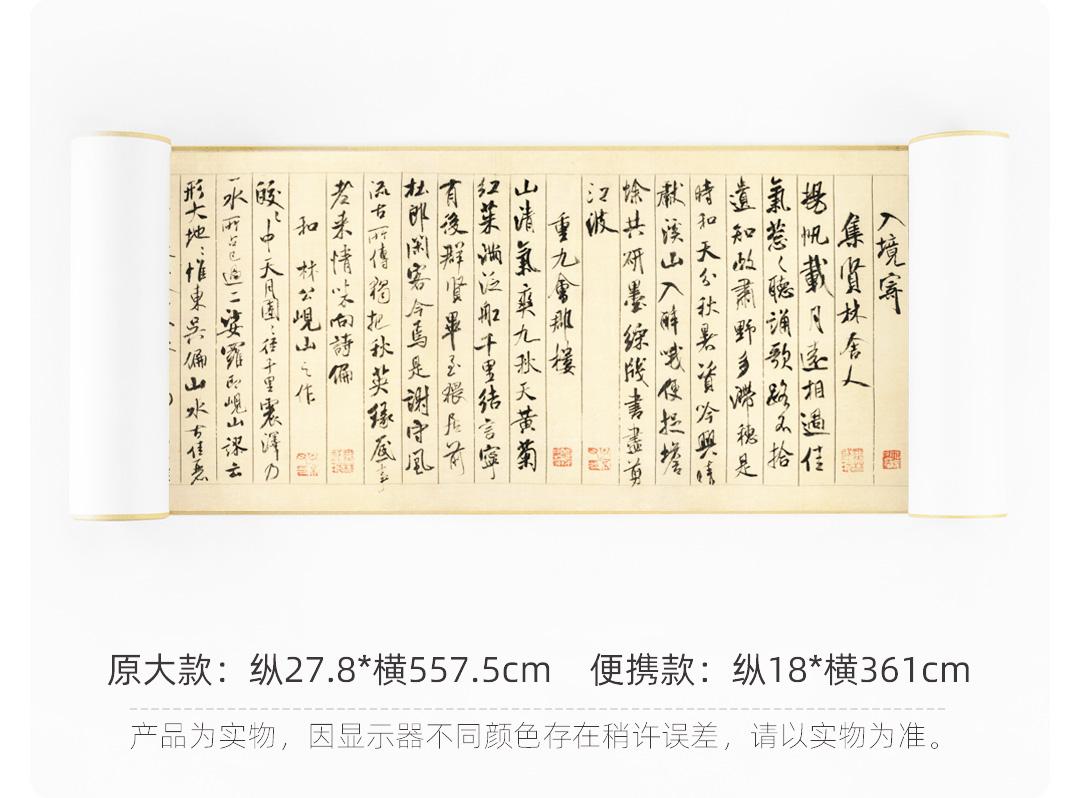 入境寄
集賢林舍人
揚帆載月遠相過佳
氣蔥〻聽誦歌路不拾
遺知政肅野多滯穗是
時和天分秋暑資吟興晴
獻溪山入醉哦便捉蟾
蜍共研墨綵牋書盡剪
江波
重九會郡樓
山清氣爽九秋天黃菊
紅茱滿泛船千里結言寧
有後群賢畢至猥居前
杜郎閑客今焉是謝守風
流古所傳獨把秋英緣底事
老來情味向詩偏
和林公峴山之作
皎〻中天月團〻徑千里震澤乃
一水所占已過二娑羅即峴山謬云
形大地〻惟東吳偏山水古佳麗
原大款：纵27.8*横557.5cm 便携款：纵18*横361cm
产品为实物，因显示器不同颜色存在稍许误差，请以实物为准。